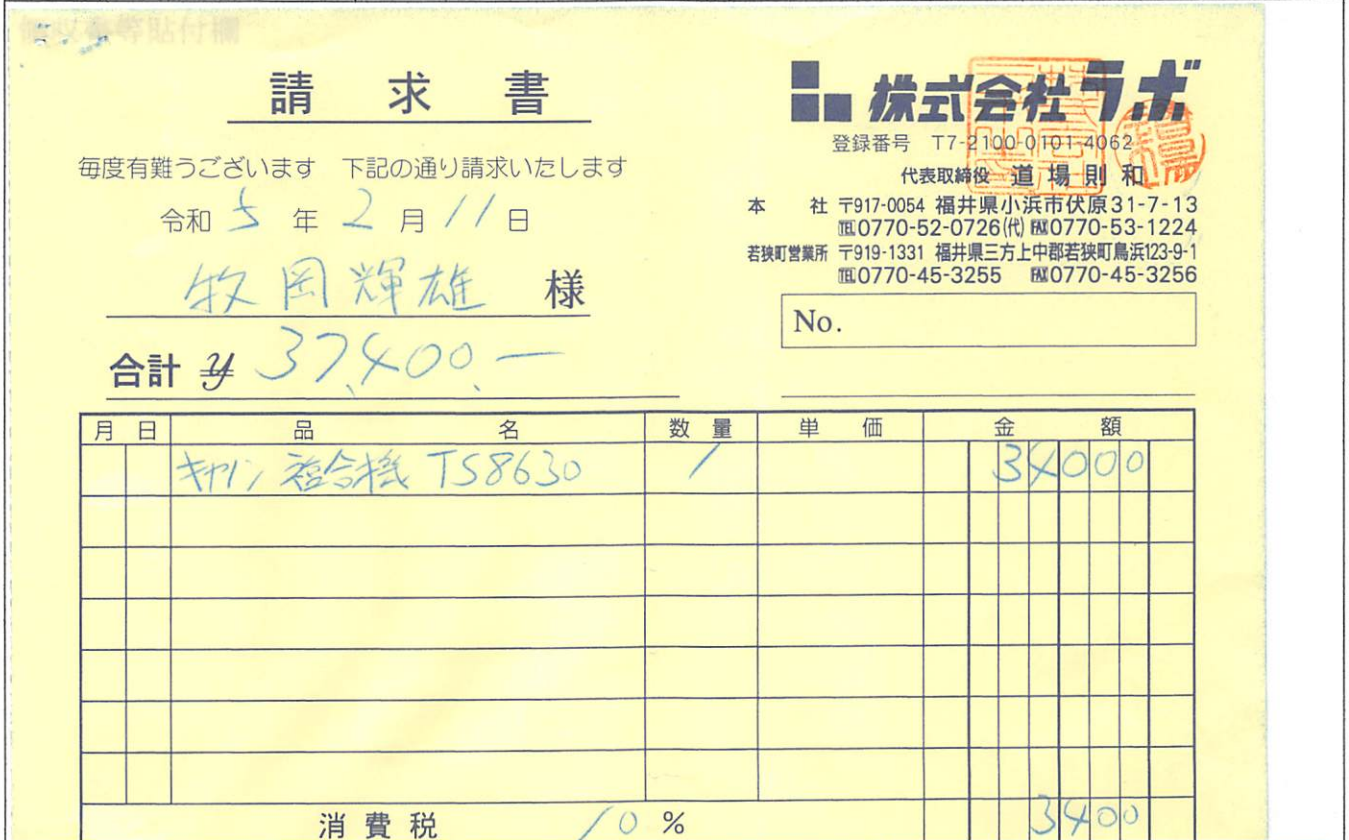 領収書等貼付欄
請求書
毎度有難うございます 下記の通り請求いたします
令和 5 年 2 月 11 日
牧岡輝雄 様
合計 ¥ 37,400.-
株式会社ラボ
登録番号 T7-2100-0101-4062
代表取締役 道場則和
本社 〒917-0054 福井県小浜市伏原31-7-13
TEL0770-52-0726(代) FAX0770-53-1224
若狭町営業所 〒919-1331 福井県三方上中郡若狭町鳥浜123-9-1
TEL0770-45-3255 FAX0770-45-3256
No.
月 日 品名 数量 単価 金額
キヤノン 複合機 TS8630 1 34000
消費税 10 % 3400